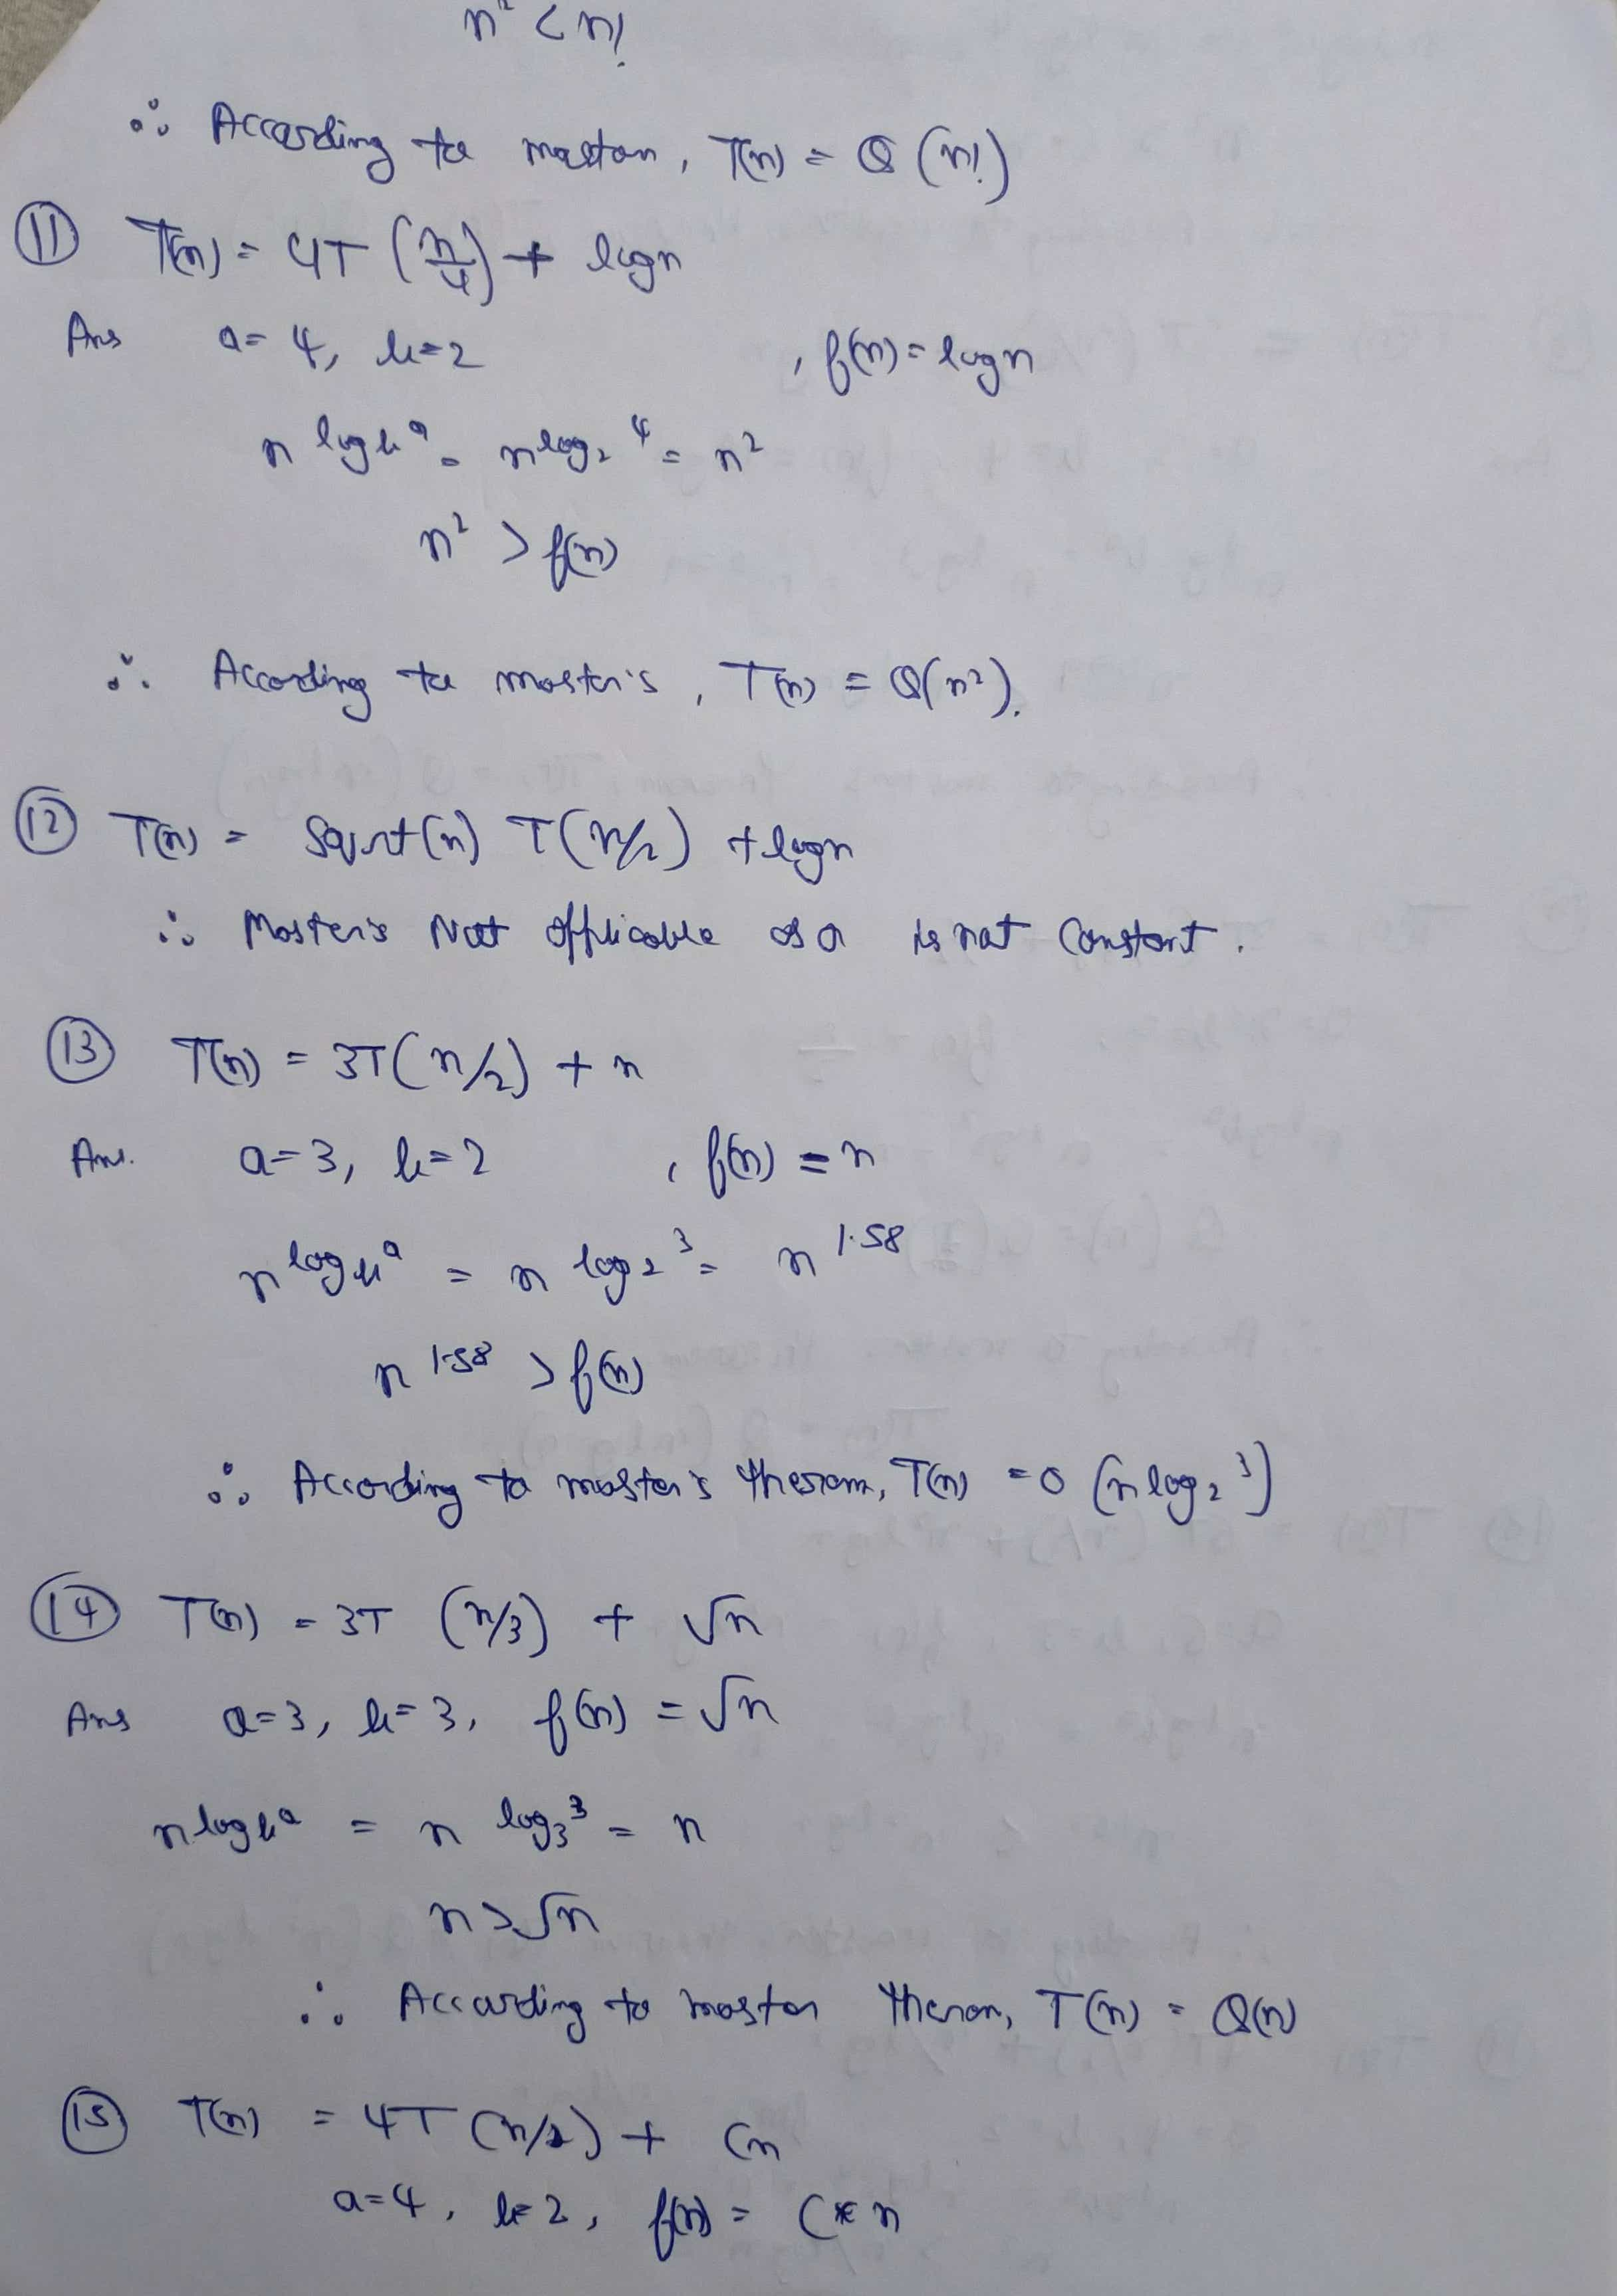 n² < n!
∴ According to master, T(n) = θ (n!)
⑪ T(n) = 4T (n/4) + logn
Ans a= 4, b=2 , f(n) = logn
n log b a = n log₂ 4 = n²
n² > f(n)
∴ According to master's, T(n) = θ(n²).
⑫ T(n) = Sqrt(n) T(n/2) + logn
∴ Master's Not applicable as a is not constant.
⑬ T(n) = 3T(n/2) + n
Ans. a=3, b=2 , f(n) = n
n log b a = n log₂ 3 = n 1.58
n 1.58 > f(n)
∴ According to master's therom, T(n) = θ (n log₂ 3)
⑭ T(n) = 3T (n/3) + √n
Ans a=3, b=3, f(n) = √n
n log b a = n log₃ 3 = n
n > √n
∴ According to master theron, T(n) = θ(n)
⑮ T(n) = 4T (n/2) + Cn
a=4, b=2, f(n) = C*n